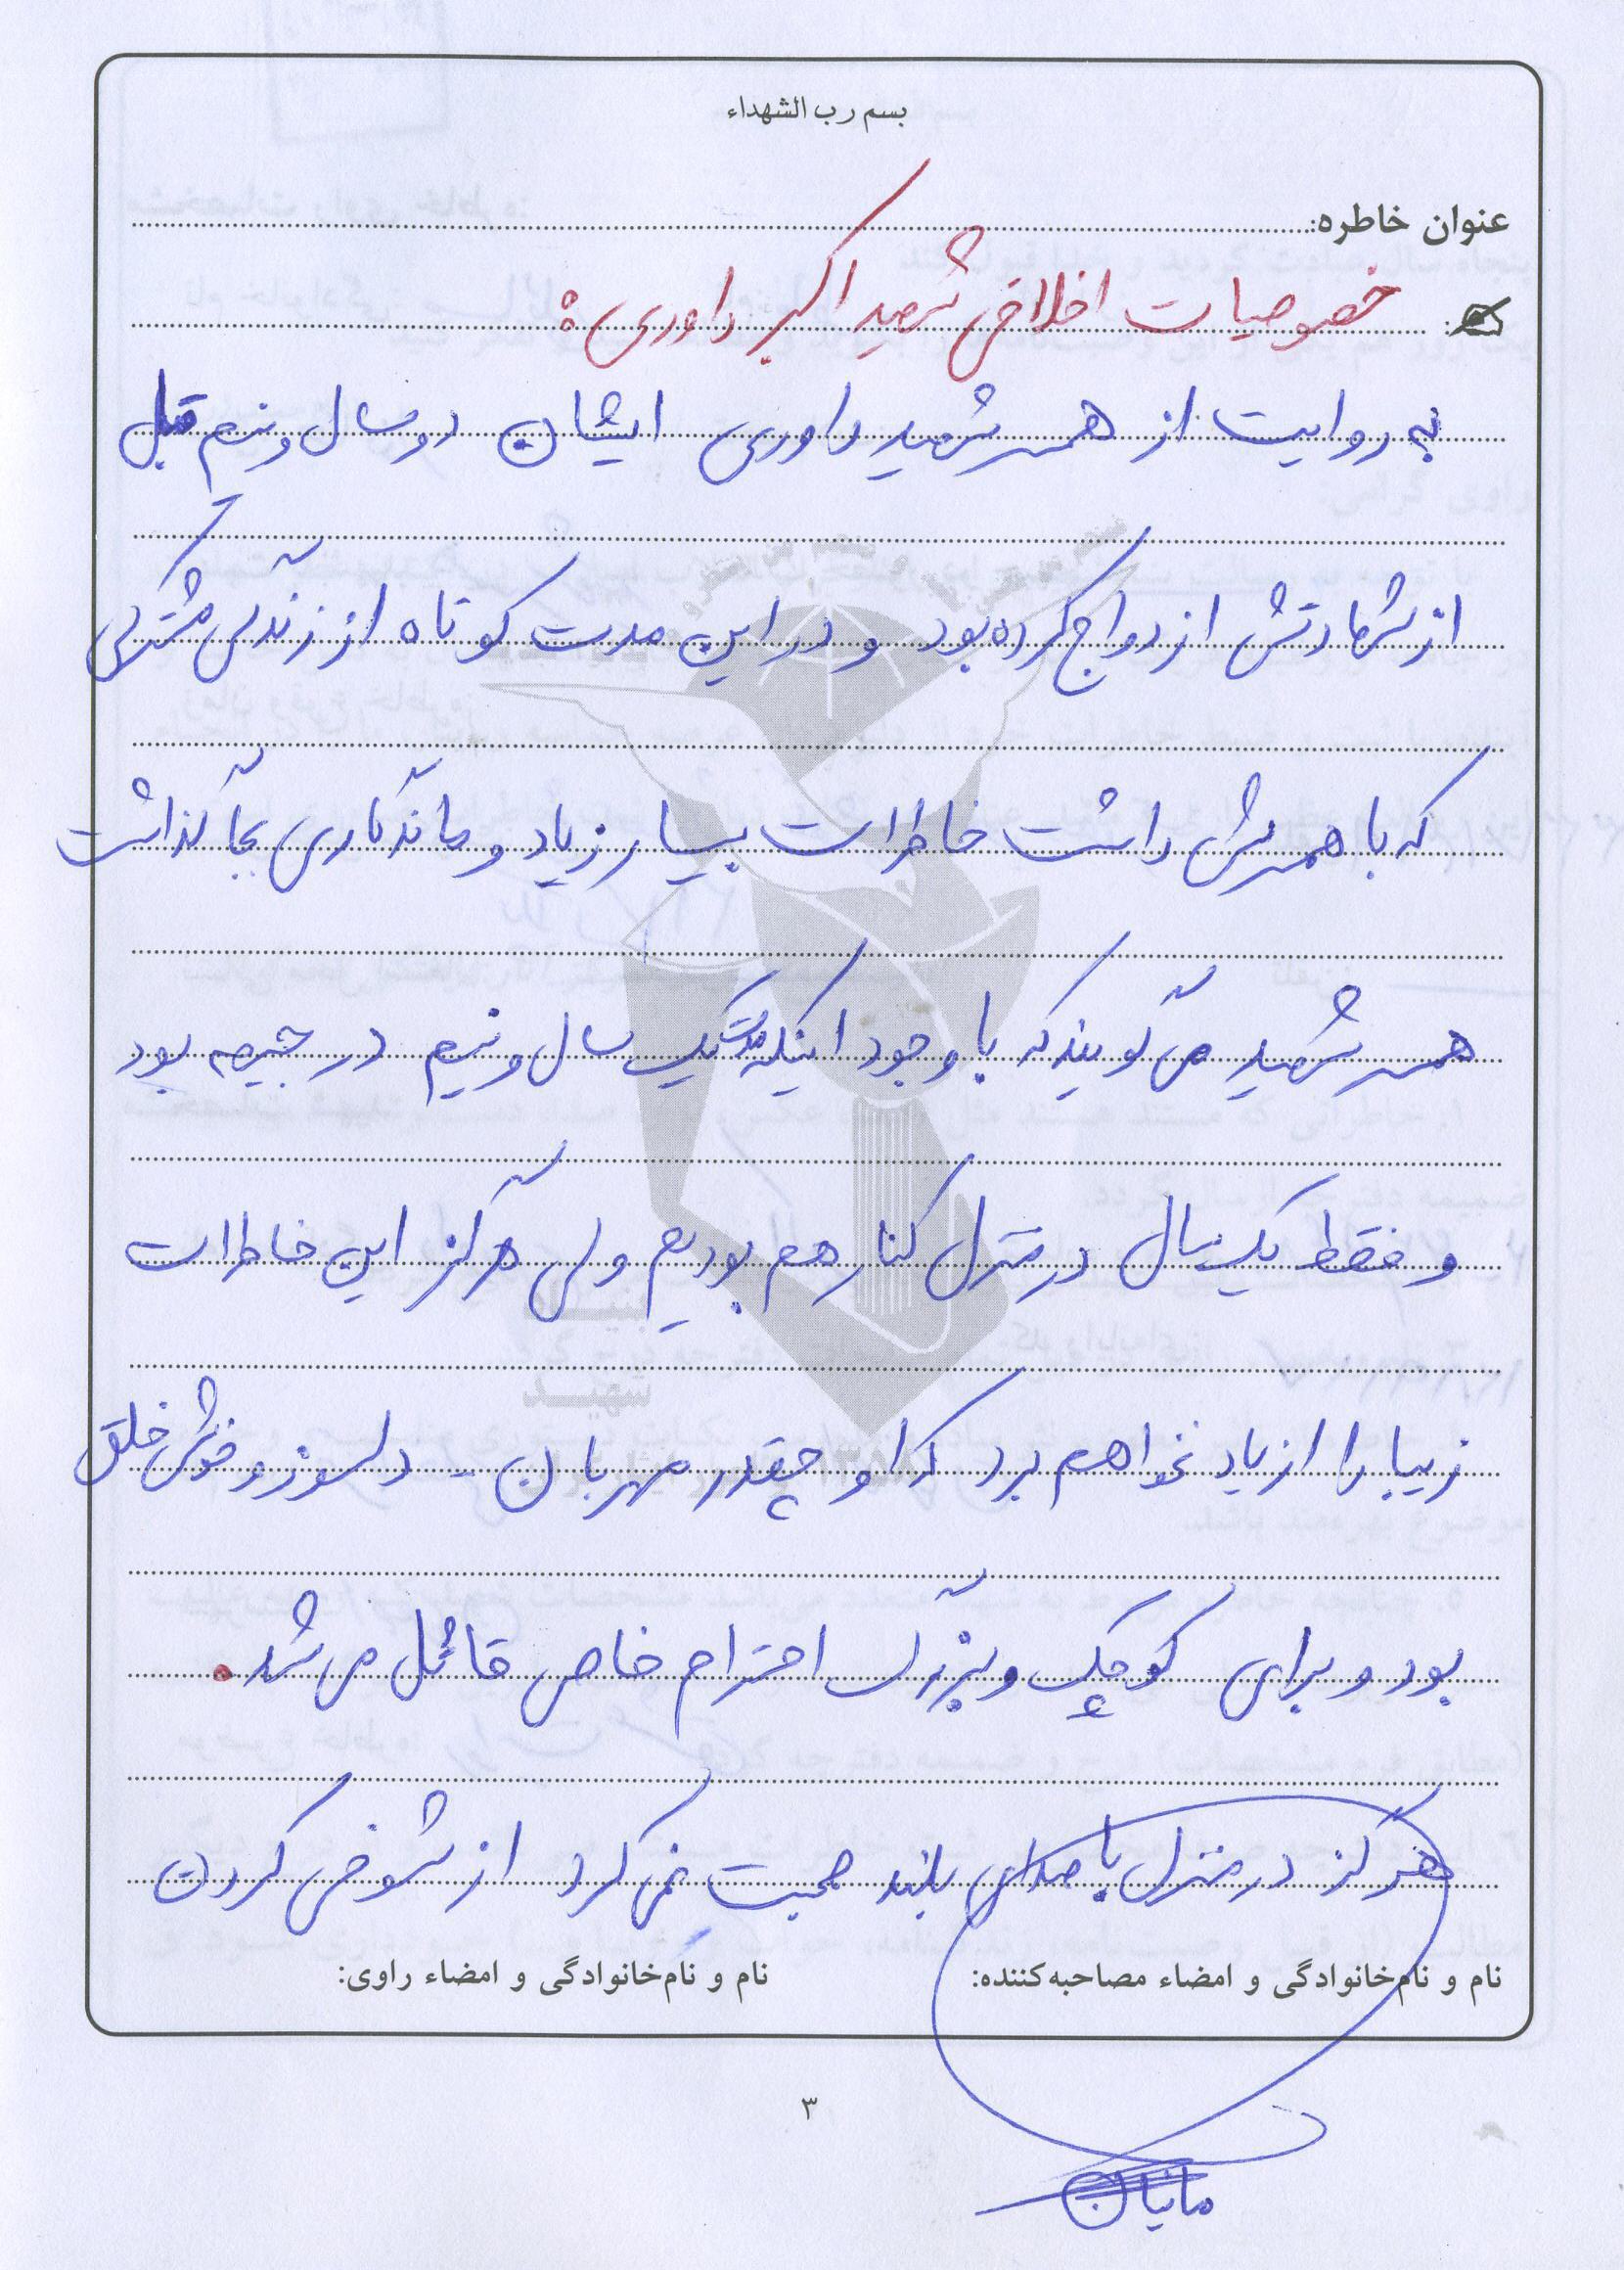 بسم رب الشهداء
عنوان خاطره:
خصوصیات اخلاقی شهید اکبر داوری:
به روایت از همسر شهید داوری ایشان دو سال و نیم قبل
از شهادتش ازدواج کرده بود و در این مدت کوتاه از زندگی مشترکی
که با همسرش داشت خاطرات بسیار زیاد و ماندگاری بجا گذاشت
همسر شهید می گویند که با وجود اینکه مدت یک سال و نیم در جبهه بود
و فقط یک سال در منزل کنار هم بودیم ولی هرگز این خاطرات
زیبا را از یاد نخواهم برد که او چقدر مهربان - دلسوز و خوش خلق
بود و برای کوچک و بزرگ احترام خاص قائل می شد.
هرگز در منزل با صدای بلند صحبت نمی کرد از شوخی کردن
نام و نام‌خانوادگی و امضاء مصاحبه‌کننده: نام و نام‌خانوادگی و امضاء راوی:
۳